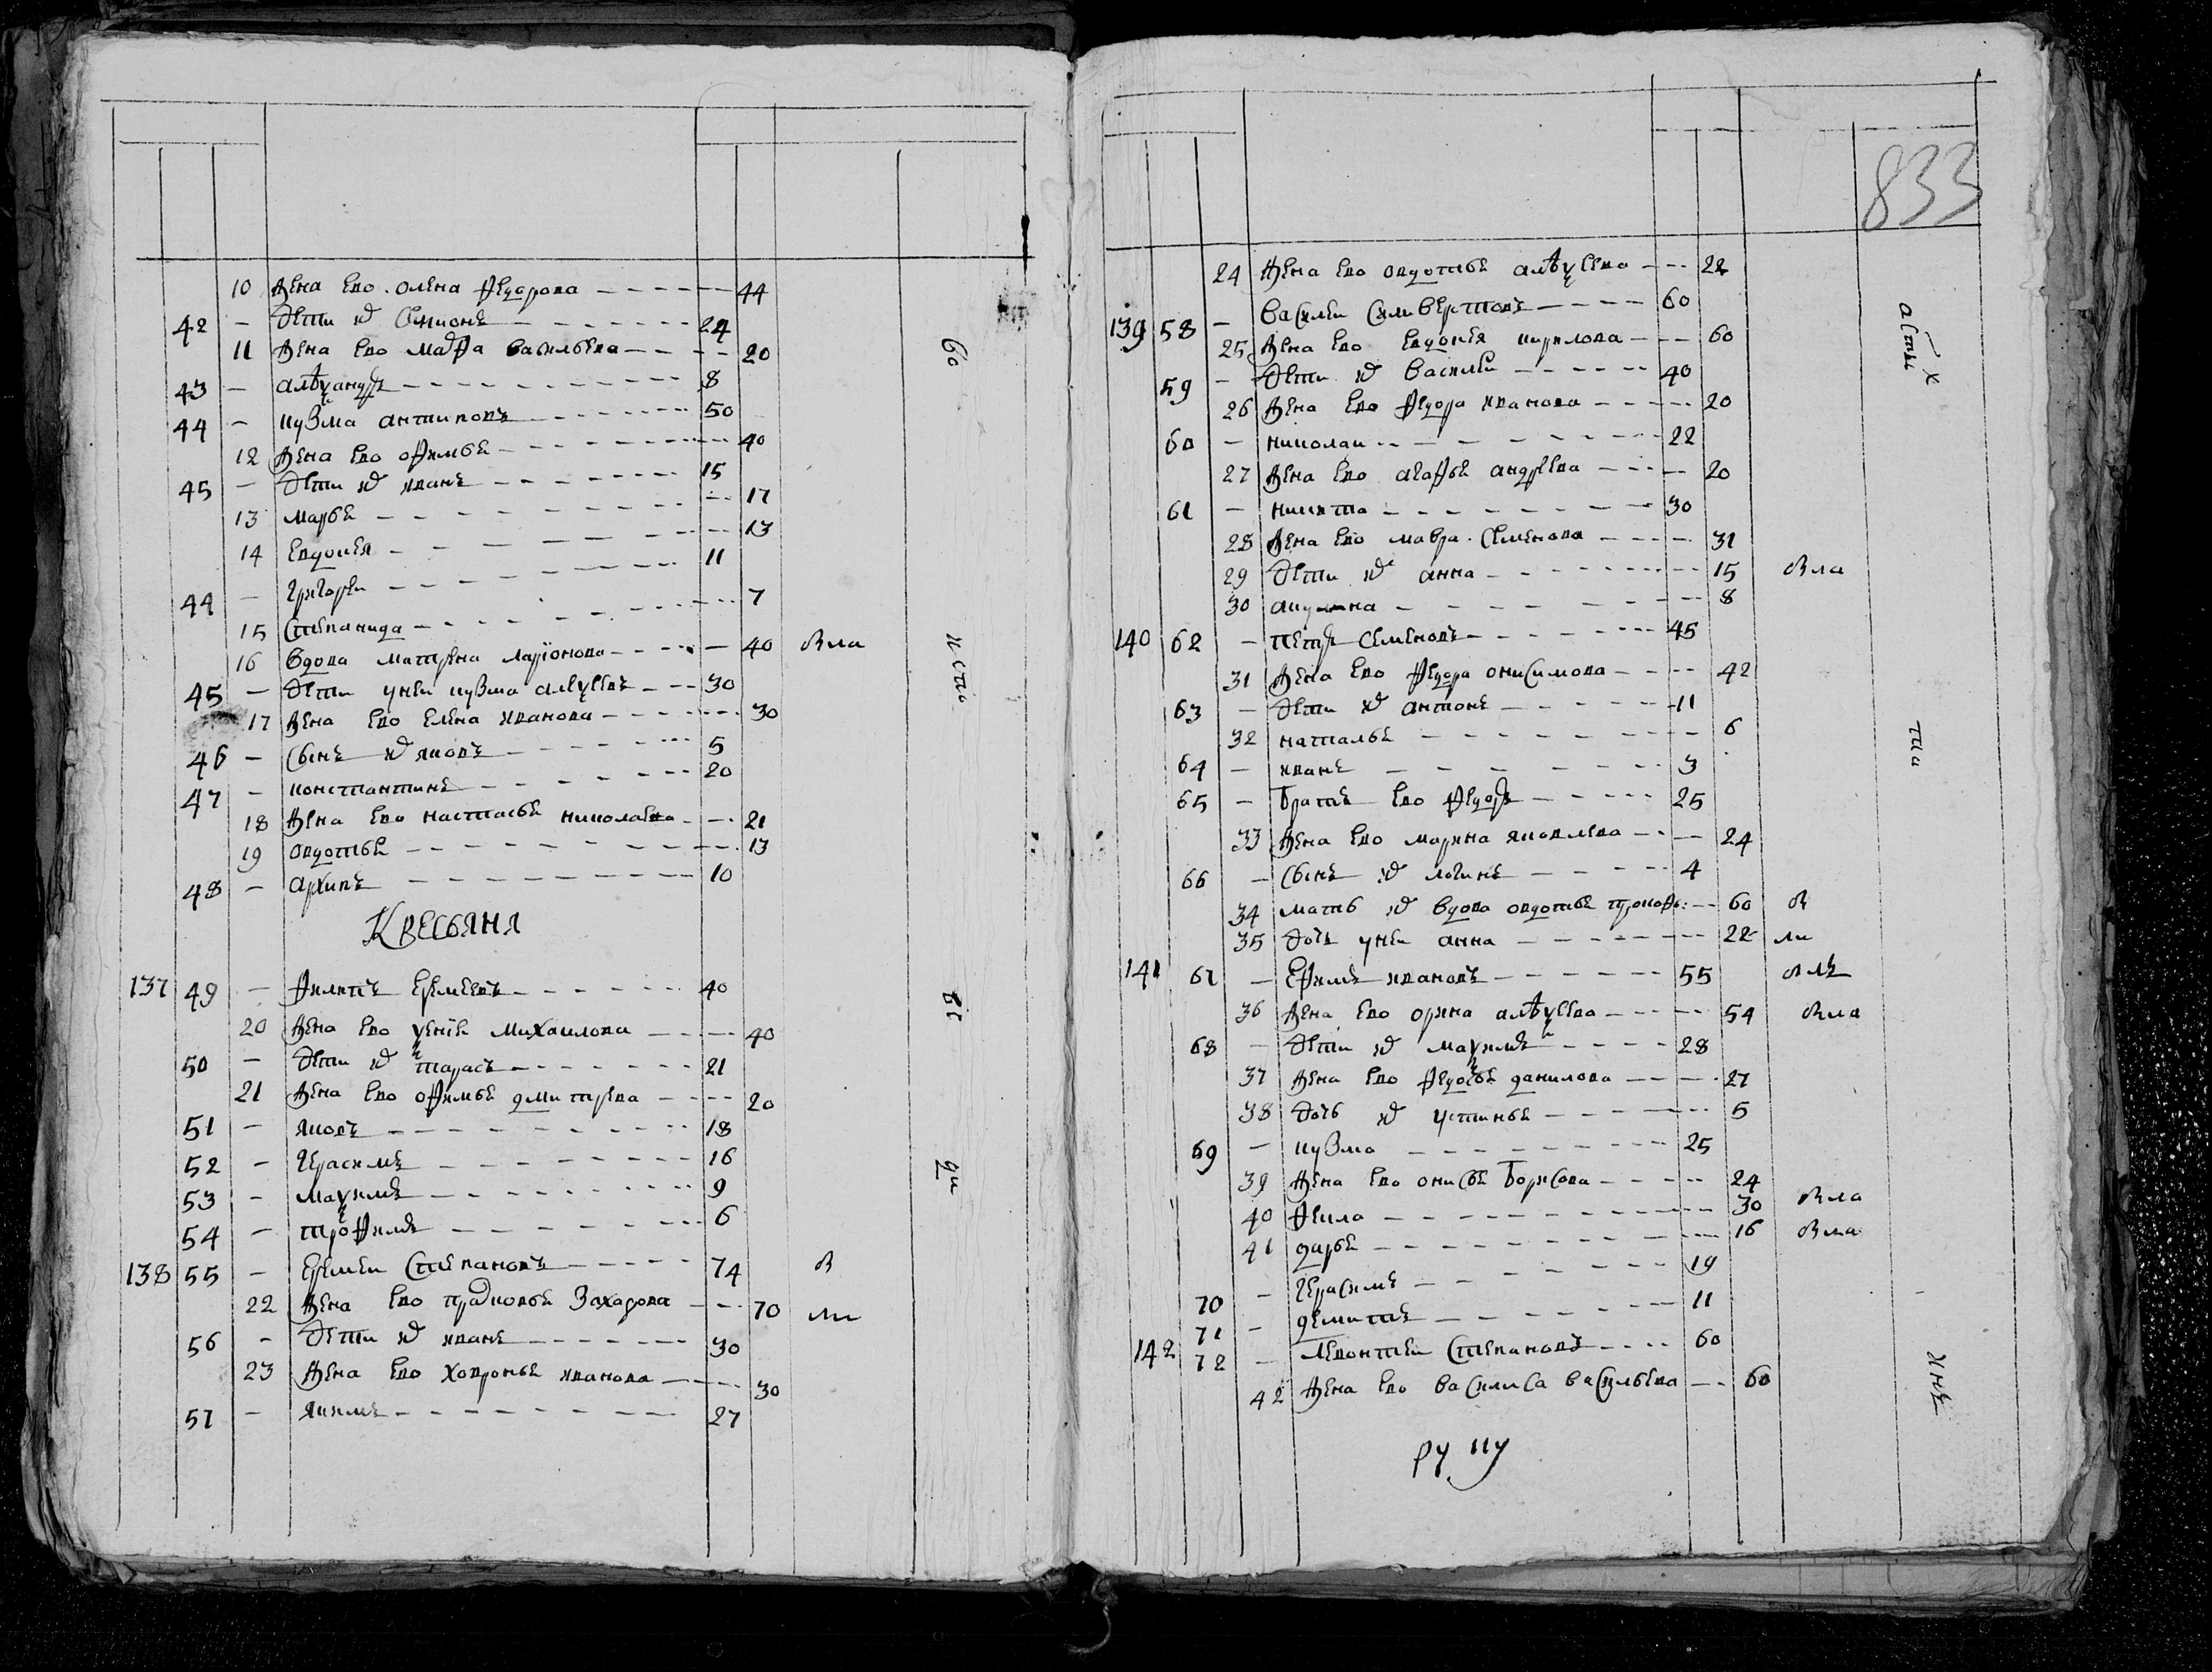 10 жена ево олена федорова 44
42 - дети их семионъ 24
11 жена ево марфа васильева 20
43 - алеѯандръ 8
44 - кузма антиповъ 50
12 жена ево офимья 40
45 - дети их иванъ 15
13 марья 17
14 евдокея 13
44 - григореи 11
15 степанида 7
16 вдова матрена ларионова 40 вла
45 - дети у неи кузма алеѯеевъ 30
17 жена ево елена иванова 30
46 - сынъ их яковъ 5
47 - константинъ 20
18 жена ево настасья николаева 21
19 овдотья 13
48 - архипъ 10
КРЕСЬЯНЯ
137 49 - филипъ еремеевъ 40
20 жена ево ѯения михаилова 40
50 - дети их тарасъ 21
21 жена ево офимья дмитрева 20
51 - яковъ 18
52 - герасимъ 16
53 - маѯимъ 9
54 - трофимъ 6
138 55 - еремеи степановъ 74 в
22 жена ево прасковья захарова 70 ли
56 - дети их иванъ 30
23 жена ево ховронья иванова 30
57 - якимъ 27
833
24 жена ево овдотья алѣѯеева 22
139 58 - василеи силверстовъ 60
25 жена ево евдокея кирилова 60
59 - дети их василеи 40
26 жена ево федора иванова 20
60 - николаи 22
27 жена ево агафья андреева 20
61 - никита 30
28 жена ево мавра семенова 31
29 дети их анна 15 вла
30 акулина 8
140 62 - петръ семеновъ 45
31 жена ево федора онисимова 42
63 - дети их антонъ 11
32 наталья 6
64 - иванъ 3
65 - братъ ево федоръ 25
33 жена ево марина яковлева 24
66 - сынъ их логинъ 4
34 мать их вдова овдотья прокофь: 60 в
35 дочь у неи анна 22 ли
141 67 - ефимъ ивановъ 55 влъ
36 жена ево орина алѣѯеева 54 вла
68 - дети их маѯимъ 28
37 жена ево федосья данилова 27
38 дочь их устинья 5
69 - кузма 25
39 жена ево онисья борисова 24
40 фекла 30 вла
41 дарья 16 вла
70 - герасимъ 19
71 - демитъ 11
142 72 - левонтеи степановъ 60
42 жена ево василиса васильева 60
ру ку